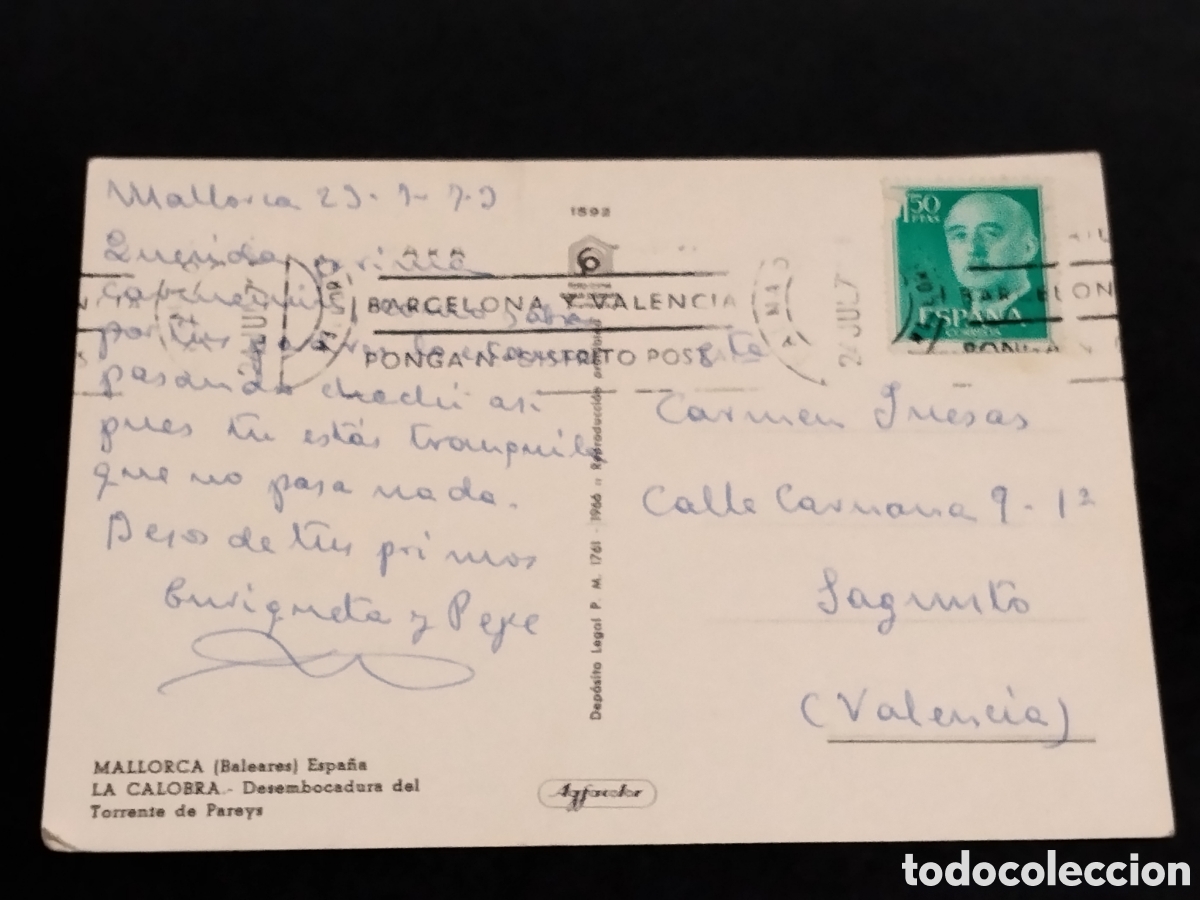 Mallorca 23-7-73
Querida prima
por tus
pasando chachi asi
pues tu estás tranquila
que no pasa nada.
Besos de tus primos
Enriqueta y Pepe
MALLORCA (Baleares) España
LA CALOBRA.- Desembocadura del
Torrente de Pareys
1592
6
BARCELONA Y VALENCIA
PONGA N.º DISTRITO POSTAL
Depósito Legal P. M. 1761 - 1966 Reproducción prohibida
Agfacolor
1,50
PTAS
ESPAÑA
CORREOS
Carmen
Calle Carmana 9-1ª
Sagunto
(Valencia)
todocoleccion